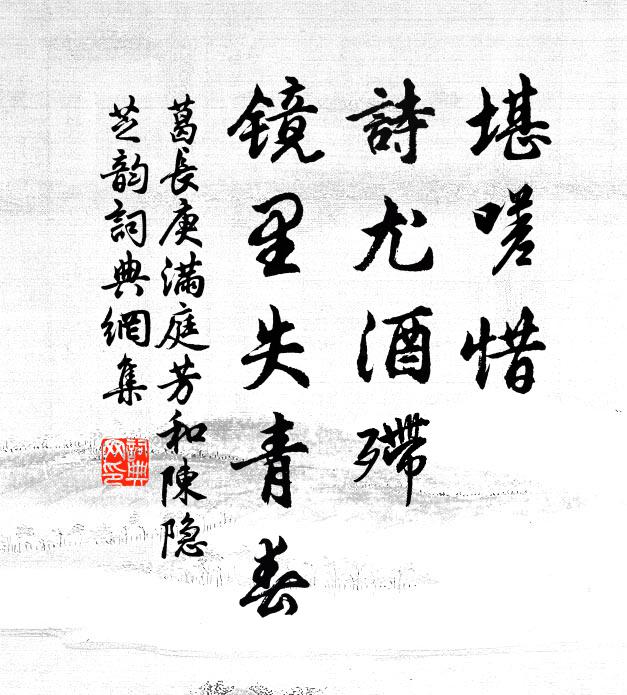 堪嗟惜
詩尤酒殢
镜里失青春
葛長庚满庭芳和陳隐
芝韵詞典網集
詞典
网印